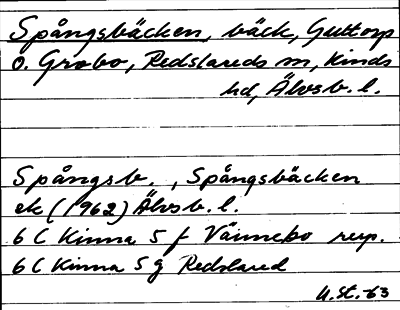 Spångsbäcken, bäck, Guttorp
o. Grobo, Redslareds sn, Kinds
hd, Älvsb. l.
Spångsb., Spångsbäcken
ek (1962) Älvsb. l.
6 C Kinna 5 f Vännebo resp.
6 C Kinna 5 g Redslared
U.St. -63